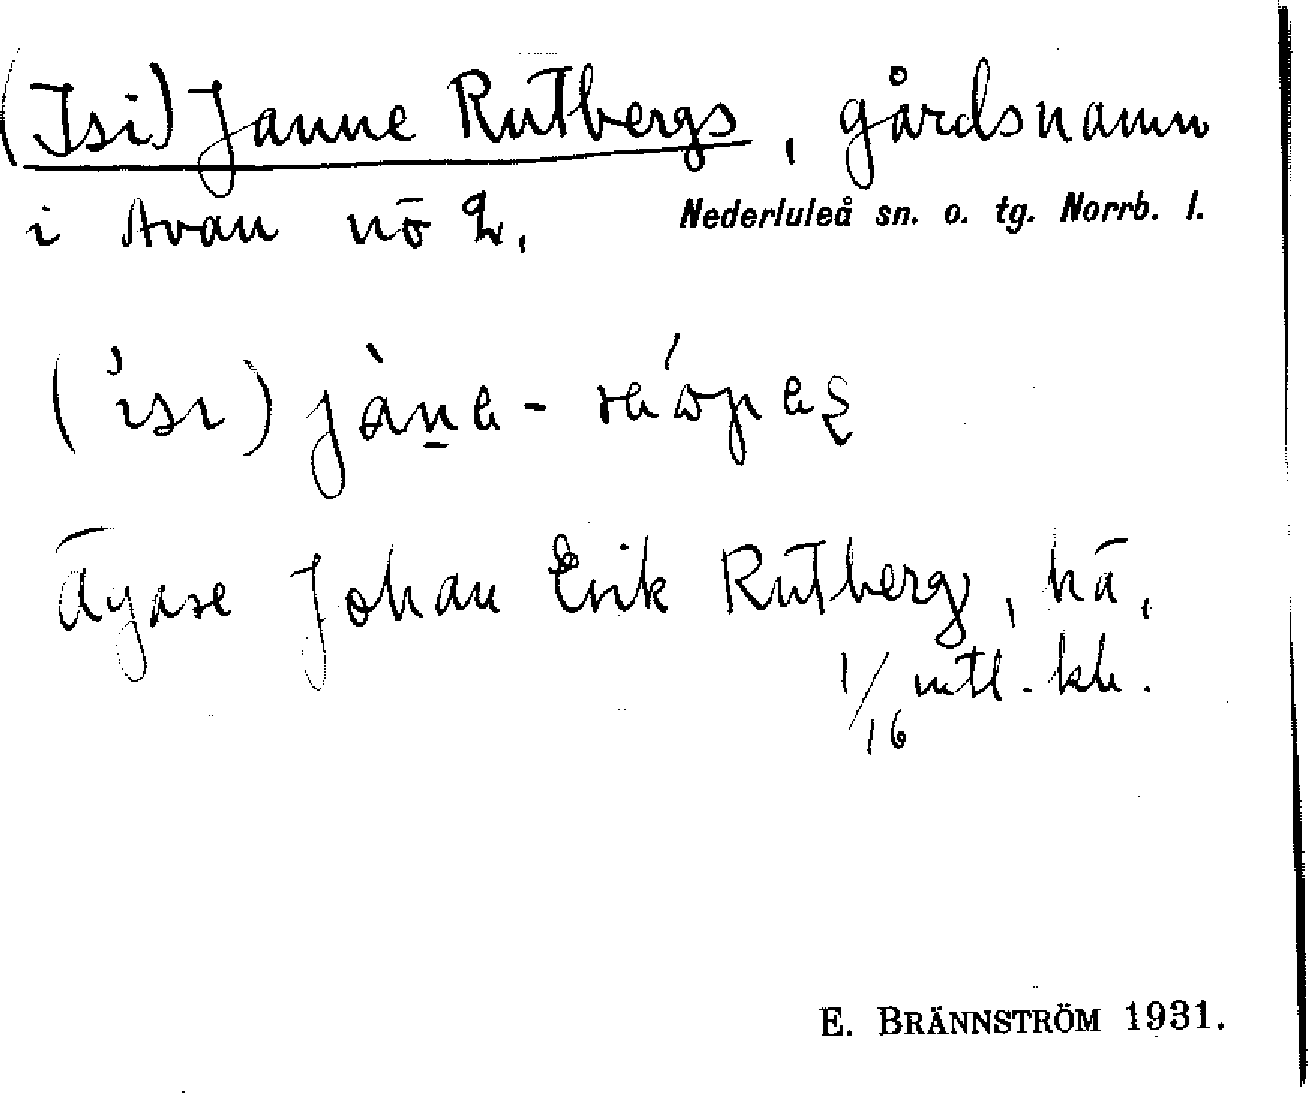 (Isi) Janne Rutbergs, gårdsnamn
i Avan nö 2. Nederluleå sn. o. tg. Norrb. l.
(ìsı)
Ägare Johan Erik Rutberg, hä,
1/16 mtl. kh.
E. BRÄNNSTRÖM 1931.